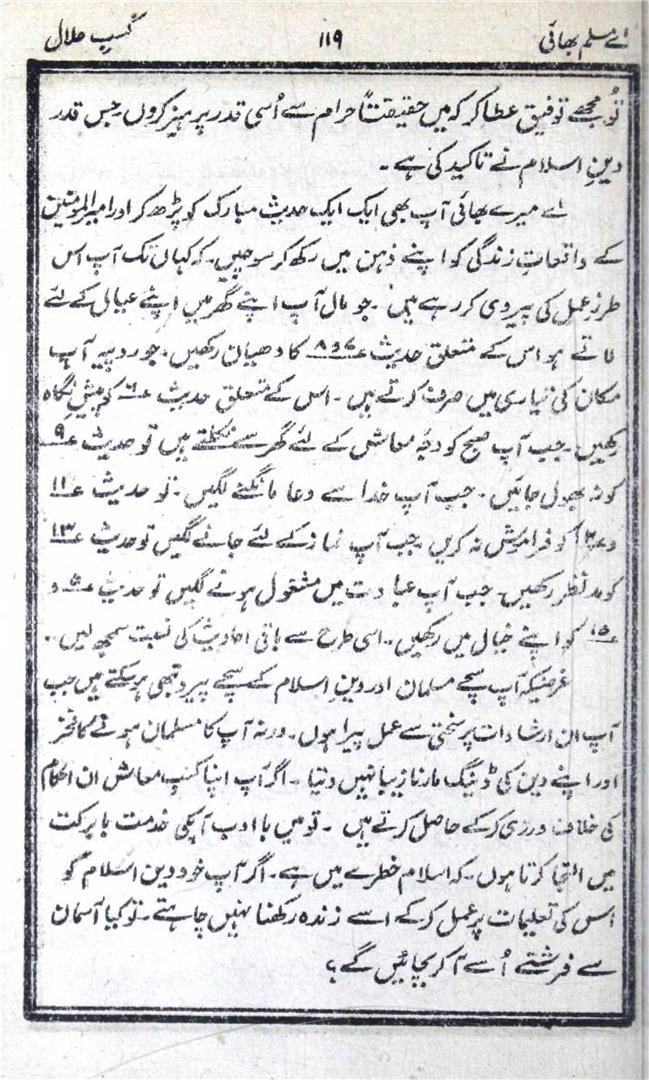 اے مسلم بھائی ۱۱۹ کسبِ حلال
تُو مجھے توفیق عطا کر کہ میں حقیقتاً حرام سے اُسی قدر پرہیز کروں جس قدر
دینِ اسلام نے تاکید کی ہے۔
اے میرے بھائی آپ بھی ایک ایک حدیث مبارک کو پڑھ کر اور امیرالمومنین
کے واقعاتِ زندگی کو اپنے ذہن میں رکھ کر سوچیں۔ کہ کہاں تک آپ اس
طرزِ عمل کی پیروی کر رہے ہیں۔ جو مال آپ اپنے گھر میں اپنے عیال کے لئے
لاتے ہو اس کے متعلق حدیث کا دھیان رکھیں۔ جو روپیہ آپ
مکان کی تیاری میں صرف کرتے ہیں۔ اس کے متعلق حدیث ۶ کو پیشِ نگاہ
رکھیں۔ جب آپ صبح کو وجہِ معاشی کے لئے گھر سے نکلتے ہیں تو حدیث ۹
کو نہ بھول جائیں۔ جب آپ خدا سے دعا مانگنے لگیں۔ تو حدیث ۱۱
و ۱۲ کو فراموش نہ کریں۔ جب آپ نماز کے لئے جانے لگیں تو حدیث ۱۳
کو مدِ نظر رکھیں۔ جب آپ عبادت میں مشغول ہونے لگیں تو حدیث و
۱۵ کو اپنے خیال میں رکھیں۔ اسی طرح سے باقی احادیث کی نسبت سمجھ لیں۔
غرضیکہ آپ سچے مسلمان اور دینِ اسلام کے سچے پیرو تبھی ہو سکتے ہیں جب
آپ ان ارشادات پر سختی سے عمل پیرا ہوں۔ ورنہ آپ کا مسلمان ہونے کا فخر
اور اپنے دین کی ڈینگ مارنا زیبا نہیں دیتا۔ اگر آپ اپنا کسبِ معاش ان احکام
کی خلاف ورزی کر کے حاصل کرتے ہیں۔ تو میں با ادب آپکی خدمت بابرکت
میں التجا کرتا ہوں۔ کہ اسلام خطرے میں ہے۔ اگر آپ خود دین اسلام کو
اس کی تعلیمات پر عمل کر کے اسے زندہ رکھنا نہیں چاہتے۔ تو کیا آسمان
سے فرشتے اُسے آ کر بچائیں گے؟